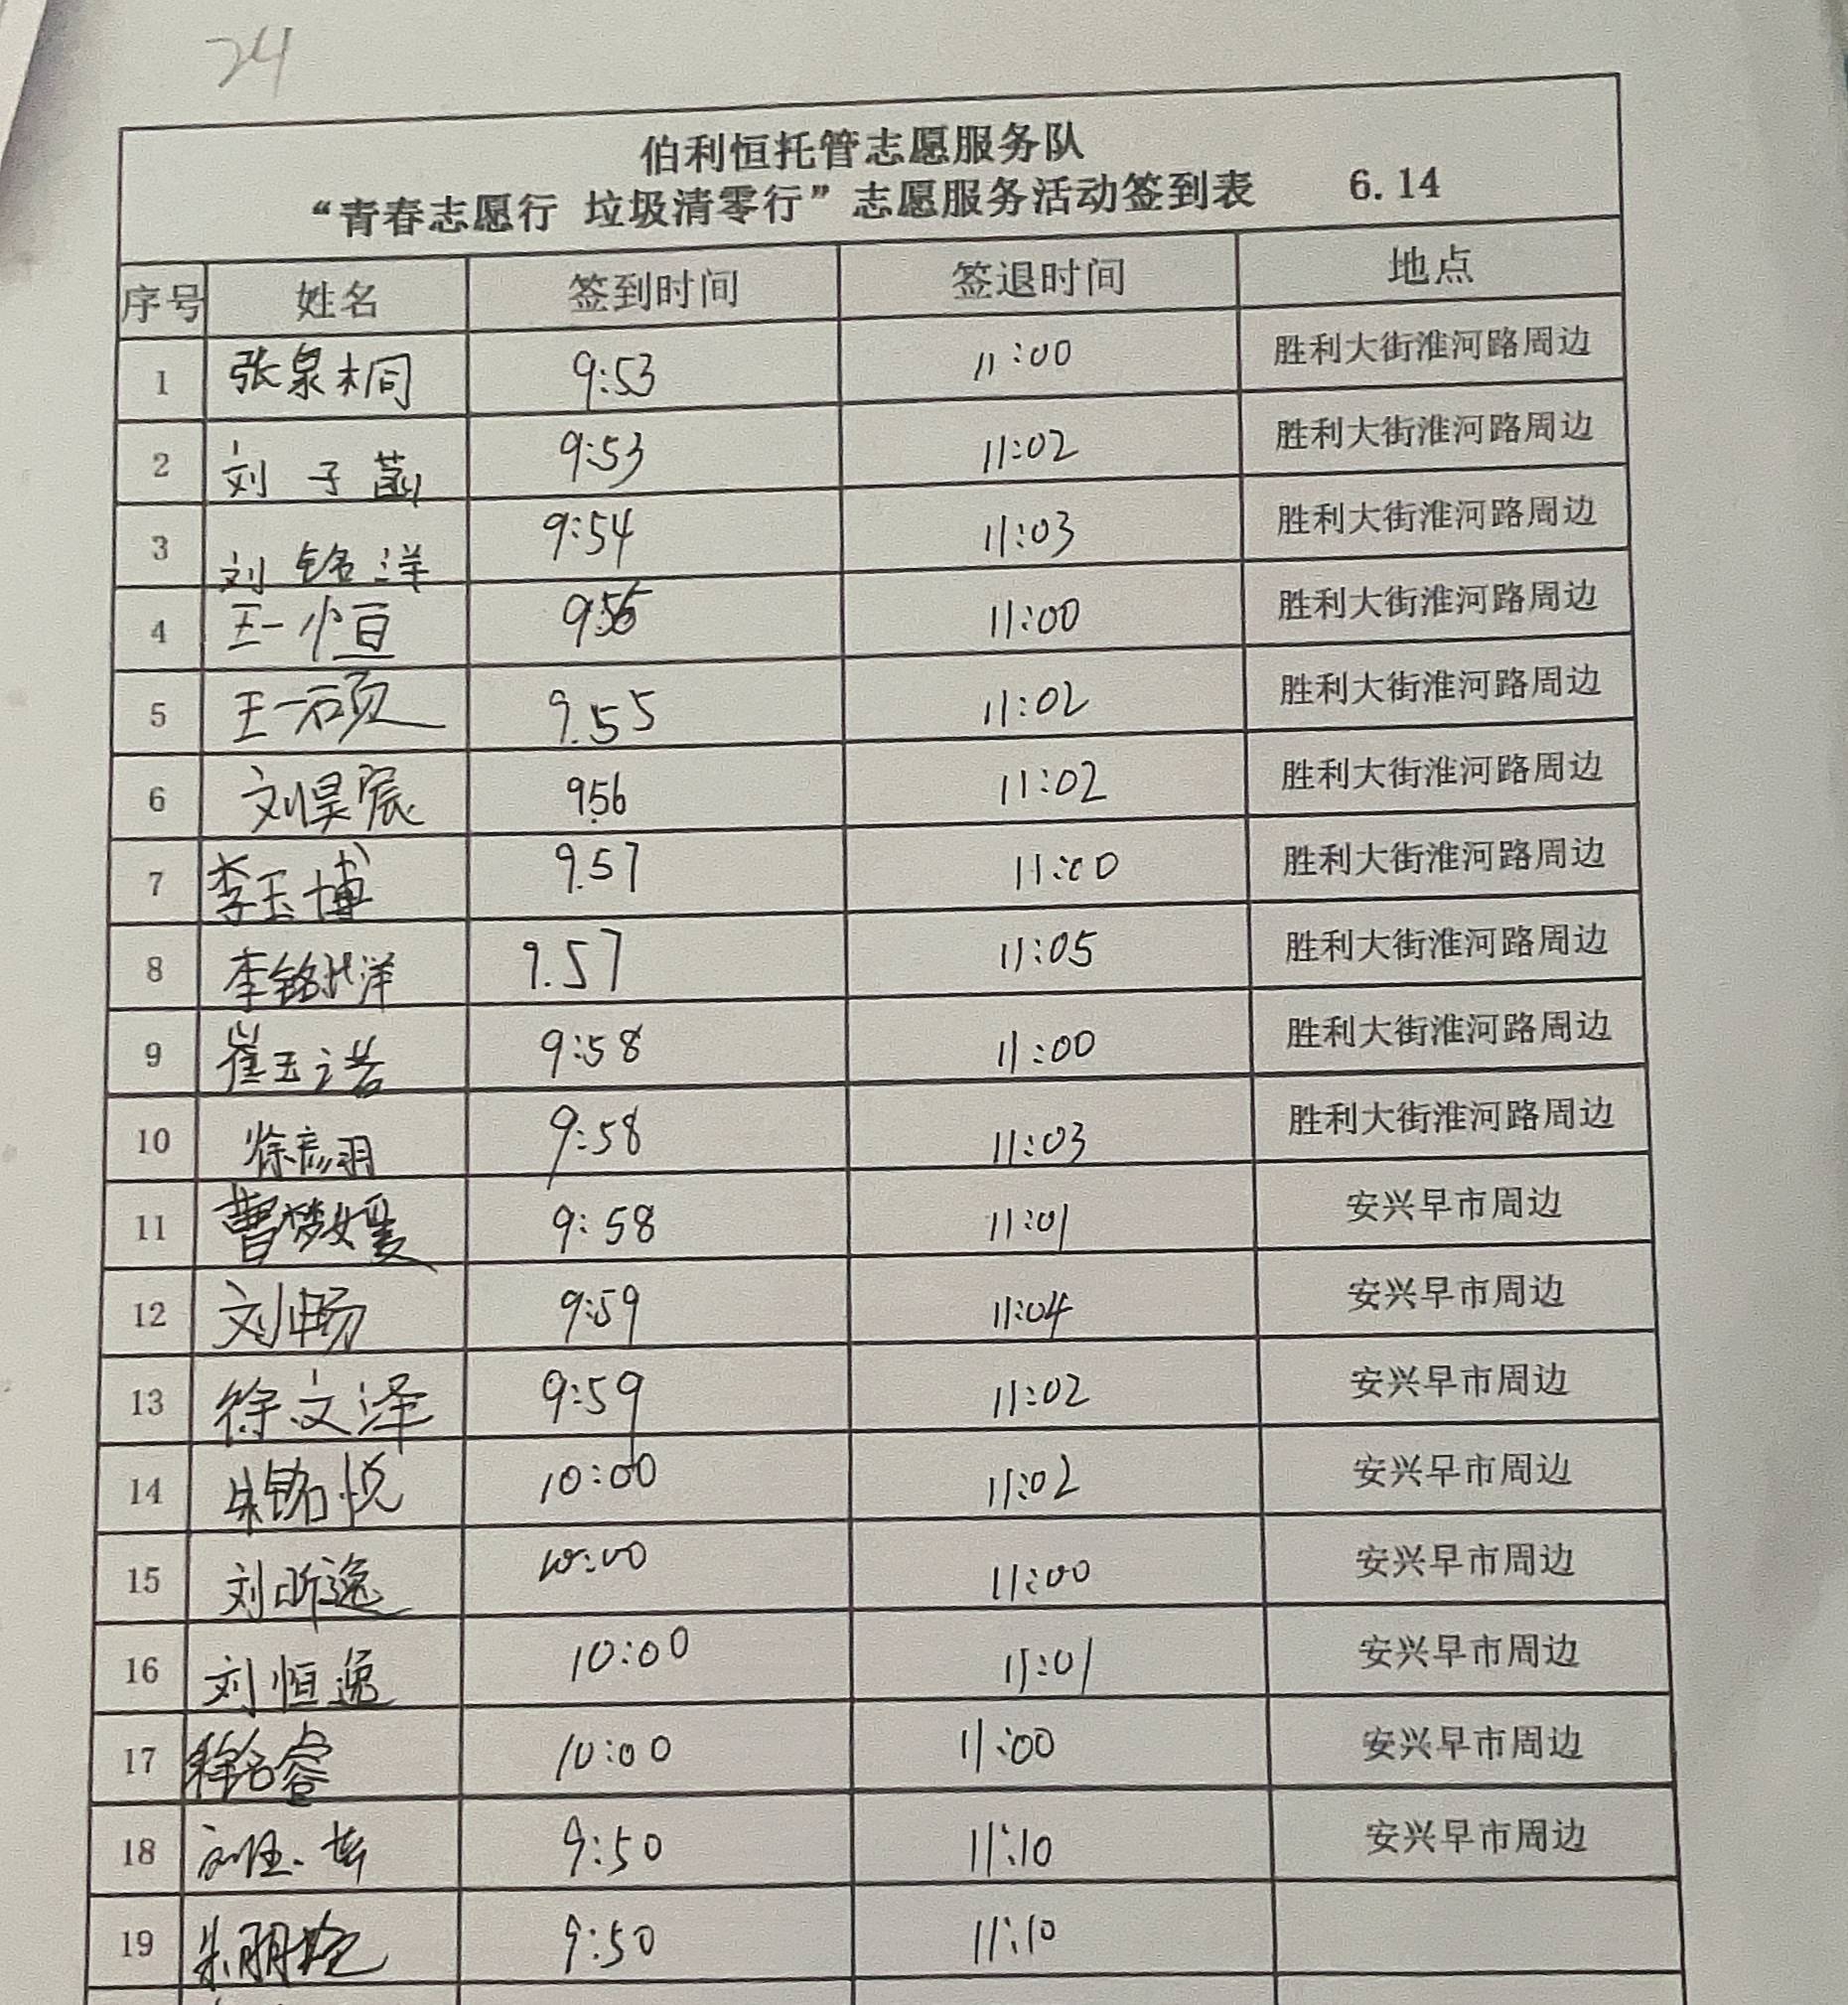 24
伯利恒托管志愿服务队
“青春志愿行 垃圾清零行”志愿服务活动签到表 6.14
序号 姓名 签到时间 签退时间 地点
1 张泉桐 9:53 11:00 胜利大街淮河路周边
2 刘子菡 9:53 11:02 胜利大街淮河路周边
3 刘铭洋 9:54 11:03 胜利大街淮河路周边
4 王一恒 11:00 胜利大街淮河路周边
5 王一硕 9.55 11:02 胜利大街淮河路周边
6 刘昊宸 9.56 11:02 胜利大街淮河路周边
7 李玉博 9.57 11:00 胜利大街淮河路周边
8 李铭洋 9.57 11:05 胜利大街淮河路周边
9 崔玉诺 9:58 11:00 胜利大街淮河路周边
10 徐彦羽 9:58 11:03 胜利大街淮河路周边
11 曹梦媛 9:58 11:01 安兴早市周边
12 刘畅 9:59 11:04 安兴早市周边
13 徐文泽 9:59 11:02 安兴早市周边
14 朱铭悦 10:00 11:02 安兴早市周边
15 刘昕逸 10:00 11:00 安兴早市周边
16 刘恒逸 10:00 11:01 安兴早市周边
17 10:00 11:00 安兴早市周边
18 9:50 11:10 安兴早市周边
19 9:50 11:10